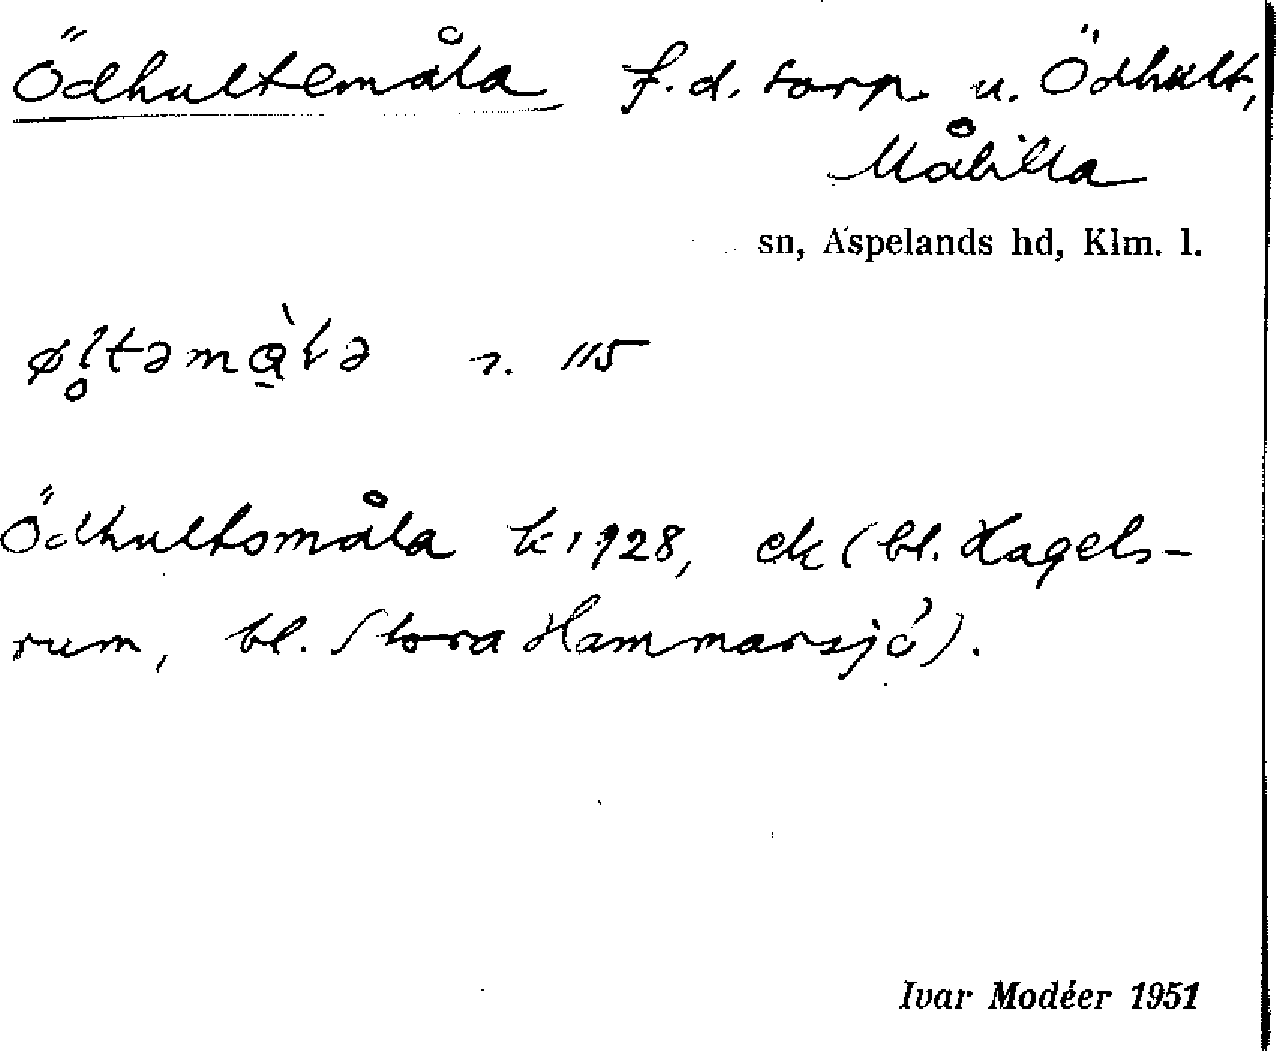 Ödhultemåla f.d. torp u. Ödhult,
Målilla
sn, Aspelands hd, Klm. l.
øl̥təmå̀lə r. 115
Ödhultsmåla k 1928, ek (bl. Hagels-
rum, bl. Stora Hammarsjö).
Ivar Modéer 1951